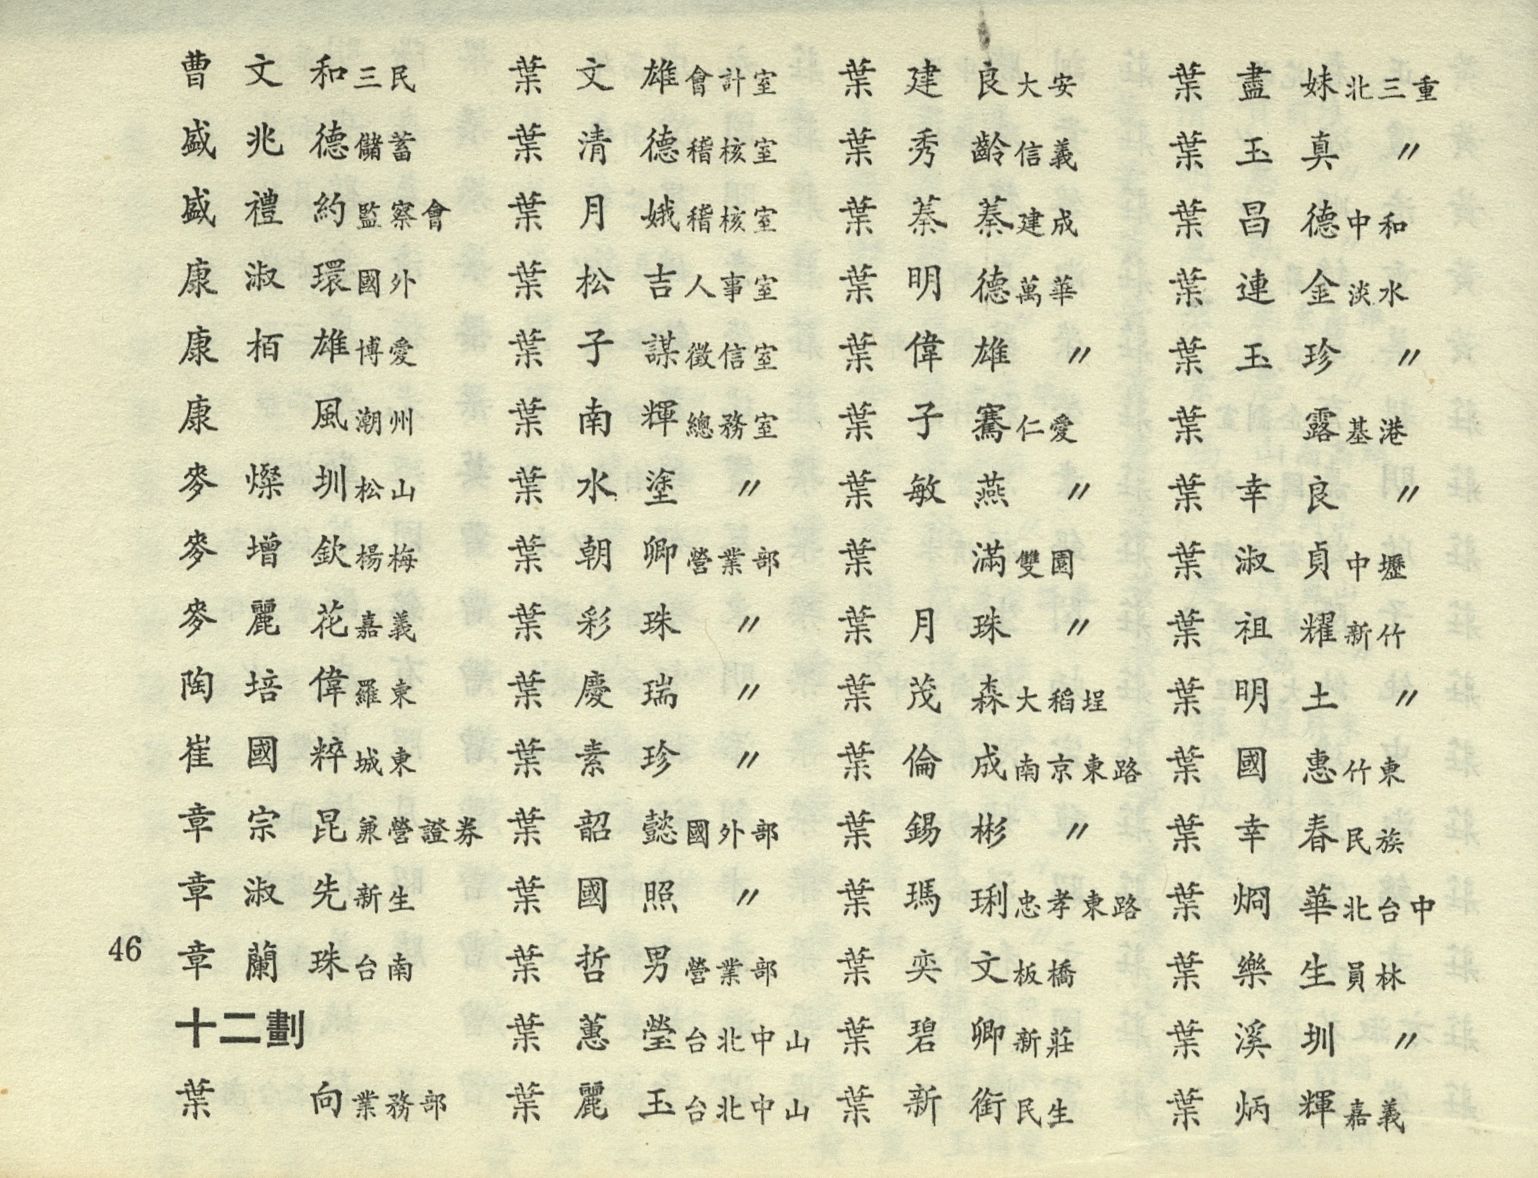 曹文和三民
盛兆德儲蓄
盛禮約監察會
康淑環國外
康栢雄博愛
康 風潮州
麥燦圳松山
麥增欽楊梅
麥麗花嘉義
陶培偉羅東
崔國粹城東
章宗昆兼營證券
章淑先新生
章蘭珠台南
十二劃
葉 向業務部
葉文雄會計室
葉清德稽核室
葉月娥稽核室
葉松吉人事室
葉子謀徵信室
葉南輝總務室
葉水塗 〃
葉朝卿營業部
葉彩珠 〃
葉慶瑞 〃
葉素珍 〃
葉韶懿國外部
葉國照 〃
葉哲男營業部
葉蕙瑩台北中山
葉麗玉台北中山
葉建良大安
葉秀齡信義
葉蓁蓁建成
葉明德萬華
葉偉雄 〃
葉子騫仁愛
葉敏燕 〃
葉 滿雙園
葉月珠 〃
葉茂森大稻埕
葉倫成南京東路
葉錫彬 〃
葉瑪琍忠孝東路
葉奕文板橋
葉碧卿新莊
葉新銜民生
葉盡妹北三重
葉玉真 〃
葉昌德中和
葉連金淡水
葉玉珍 〃
葉 露基港
葉幸良 〃
葉淑貞中壢
葉祖耀新竹
葉明土 〃
葉國惠竹東
葉幸春民族
葉烱華北台中
葉樂生員林
葉溪圳 〃
葉炳輝嘉義
46